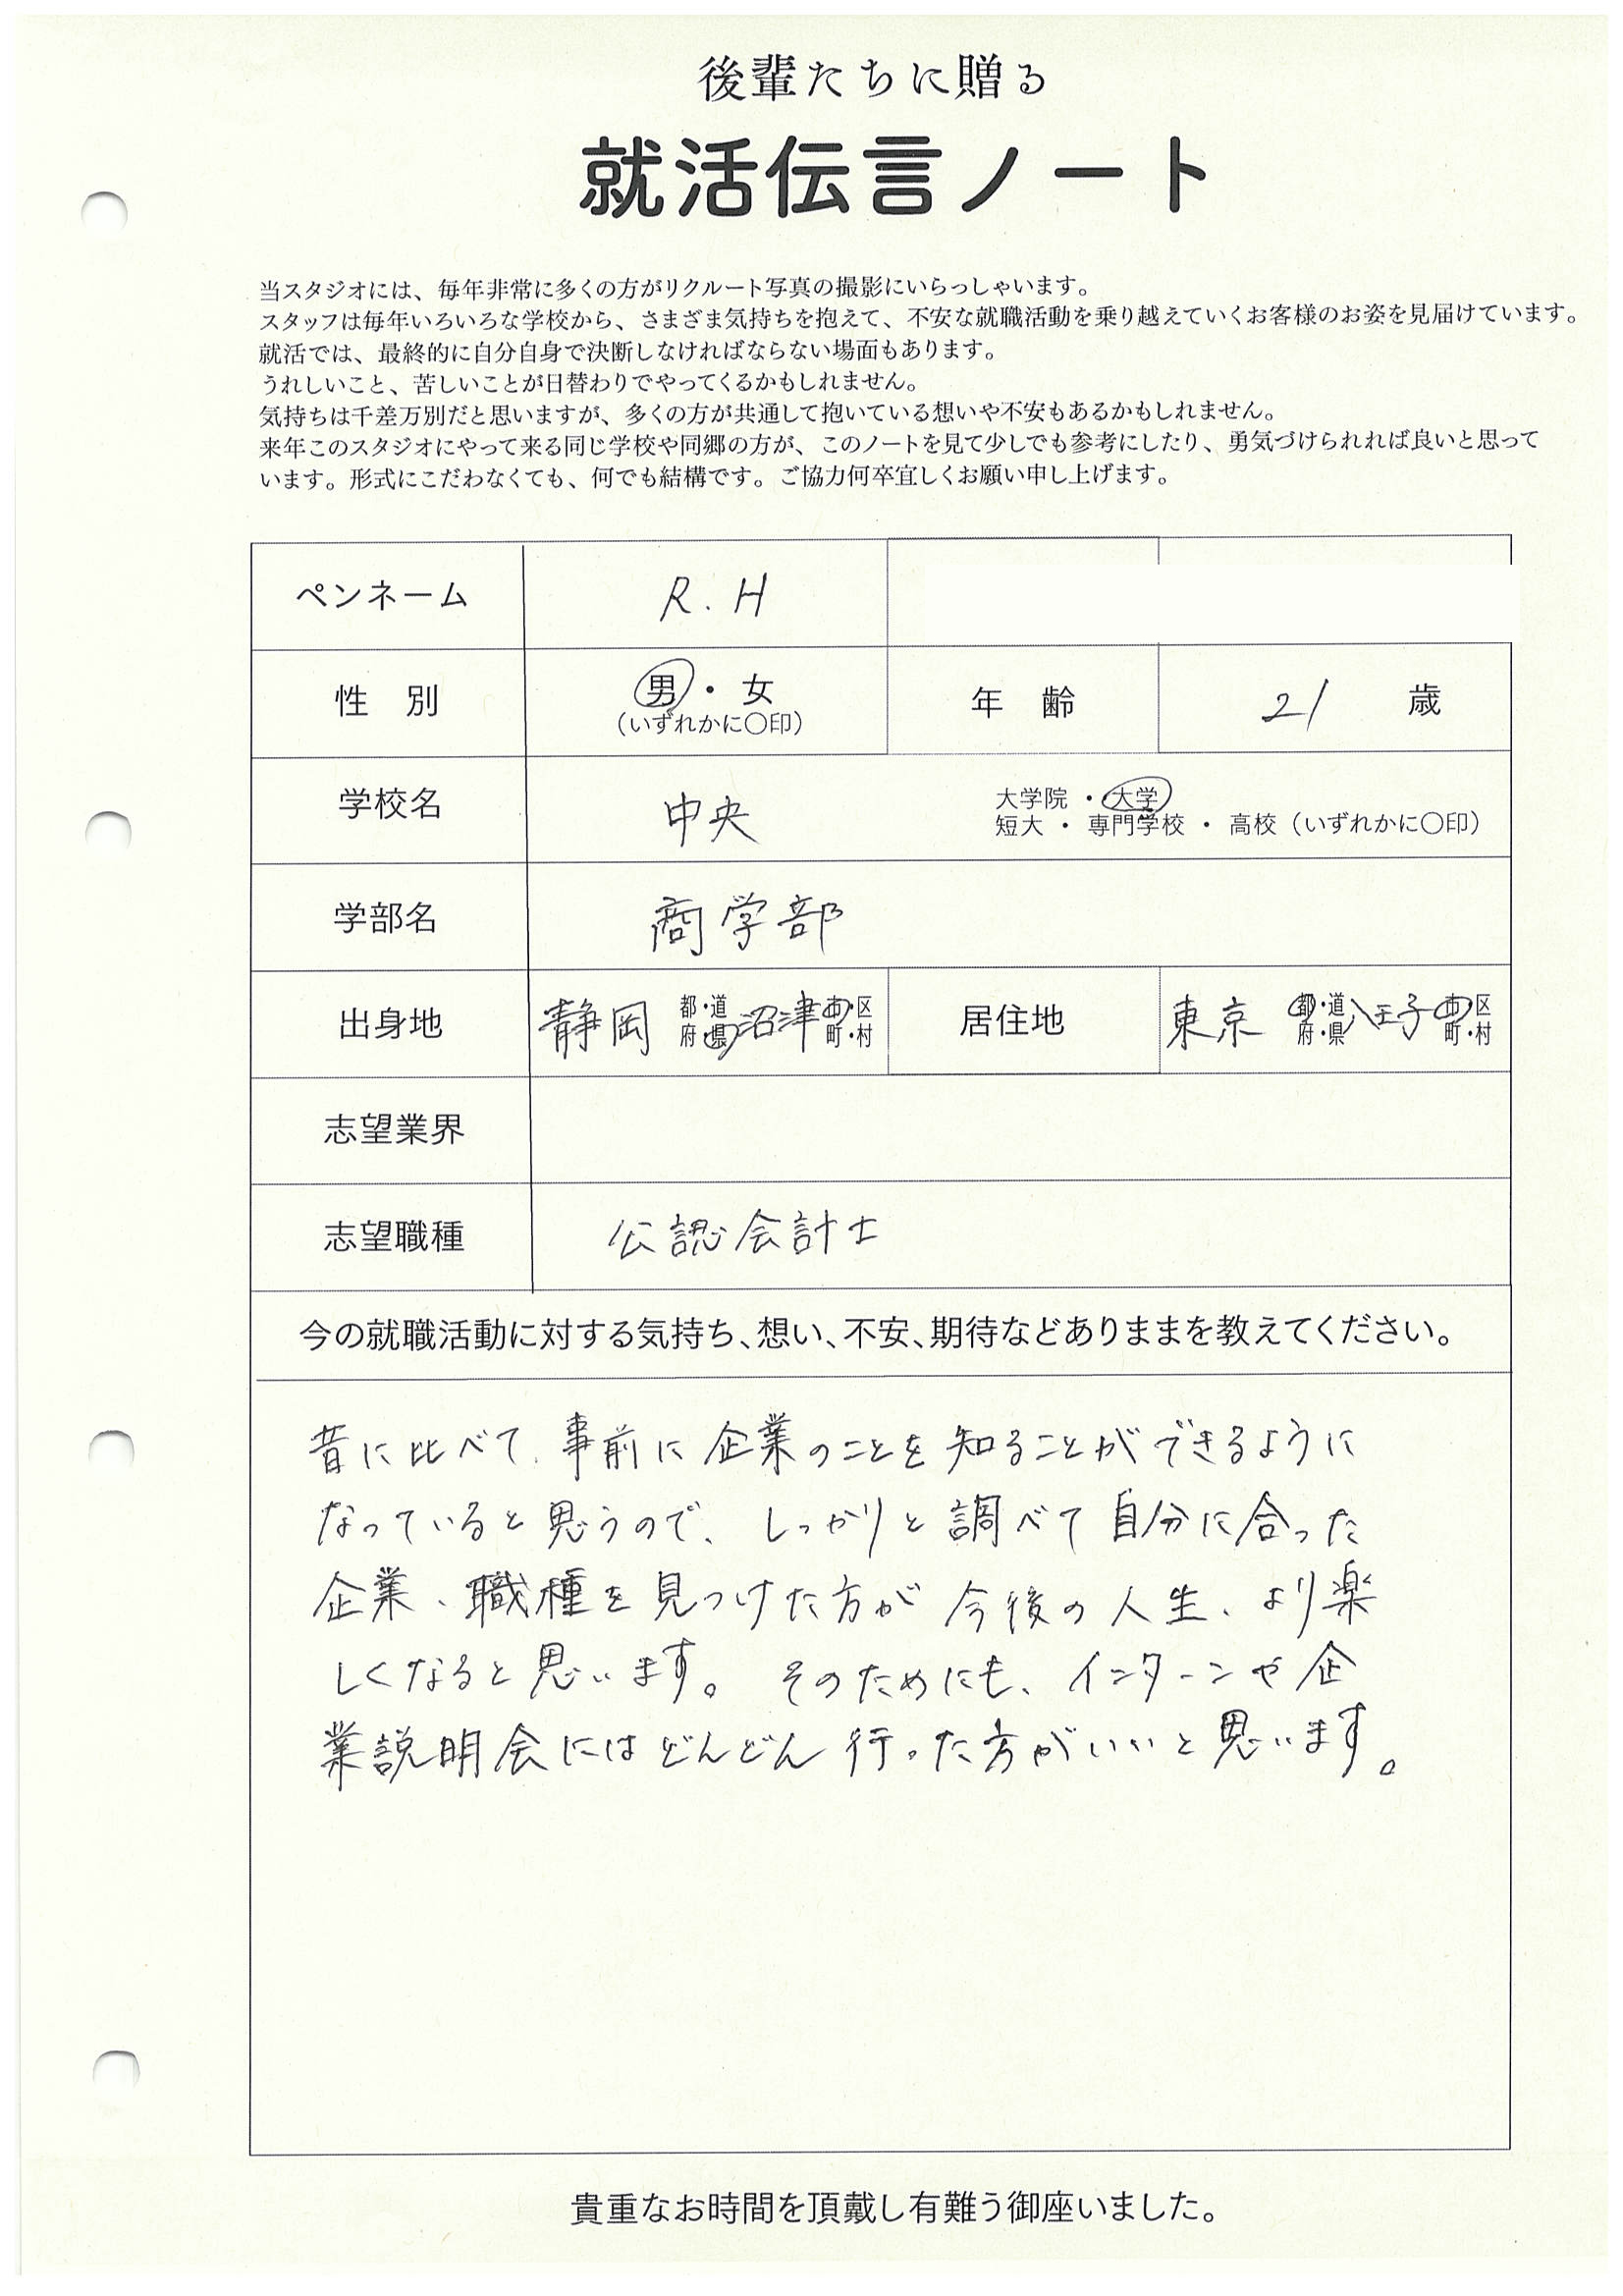 後輩たちに贈る
就活伝言ノート
当スタジオには、毎年非常に多くの方がリクルート写真の撮影にいらっしゃいます。
スタッフは毎年いろいろな学校から、さまざま気持ちを抱えて、不安な就職活動を乗り越えていくお客様のお姿を見届けています。
就活では、最終的に自分自身で決断しなければならない場面もあります。
うれしいこと、苦しいことが日替わりでやってくるかもしれません。
気持ちは千差万別だと思いますが、多くの方が共通して抱いている想いや不安もあるかもしれません。
来年このスタジオにやって来る同じ学校や同郷の方が、このノートを見て少しでも参考にしたり、勇気づけられれば良いと思って
います。形式にこだわなくても、何でも結構です。ご協力何卒宜しくお願い申し上げます。
ペンネーム R.H
性 別 男・女 年 齢 21 歳
(いずれかに〇印)
学校名 中央 大学院 ・ 大学
短大 ・ 専門学校 ・ 高校 (いずれかに〇印)
学部名 商学部
出身地 静岡 都・道 府・県 沼津 市・区 町・村 居住地 東京 都・道 府・県 八王子 市・区 町・村
志望業界
志望職種 公認会計士
今の就職活動に対する気持ち、想い、不安、期待などありままを教えてください。
昔に比べて、事前に企業のことを知ることができるように
なっていると思うので、しっかりと調べて自分に合った
企業、職種を見つけた方が今後の人生、より楽
しくなると思います。そのためにも、インターンや企
業説明会にはどんどん行った方がいいと思います。
貴重なお時間を頂戴し有難う御座いました。